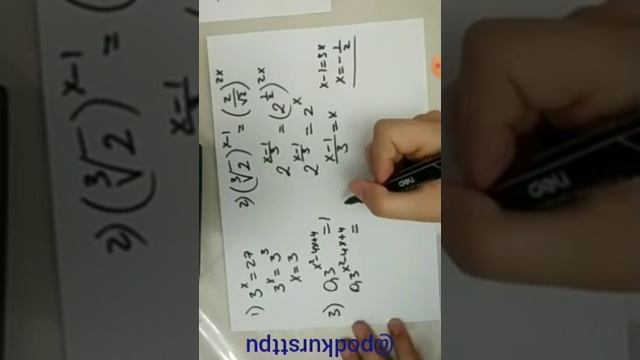 1) 3^x = 27
3^x = 3^3
x = 3
2) (∛2)^(x-1) = (2/√2)^(2x)
2^((x-1)/3) = (2^(1/2))^(2x)
2^((x-1)/3) = 2^x
(x-1)/3 = x
x-1 = 3x
x = -1/2
3) 0,3^(x²-4x+4) = 1
0,3^(x²-4x+4) =
neo
@podkursttpu